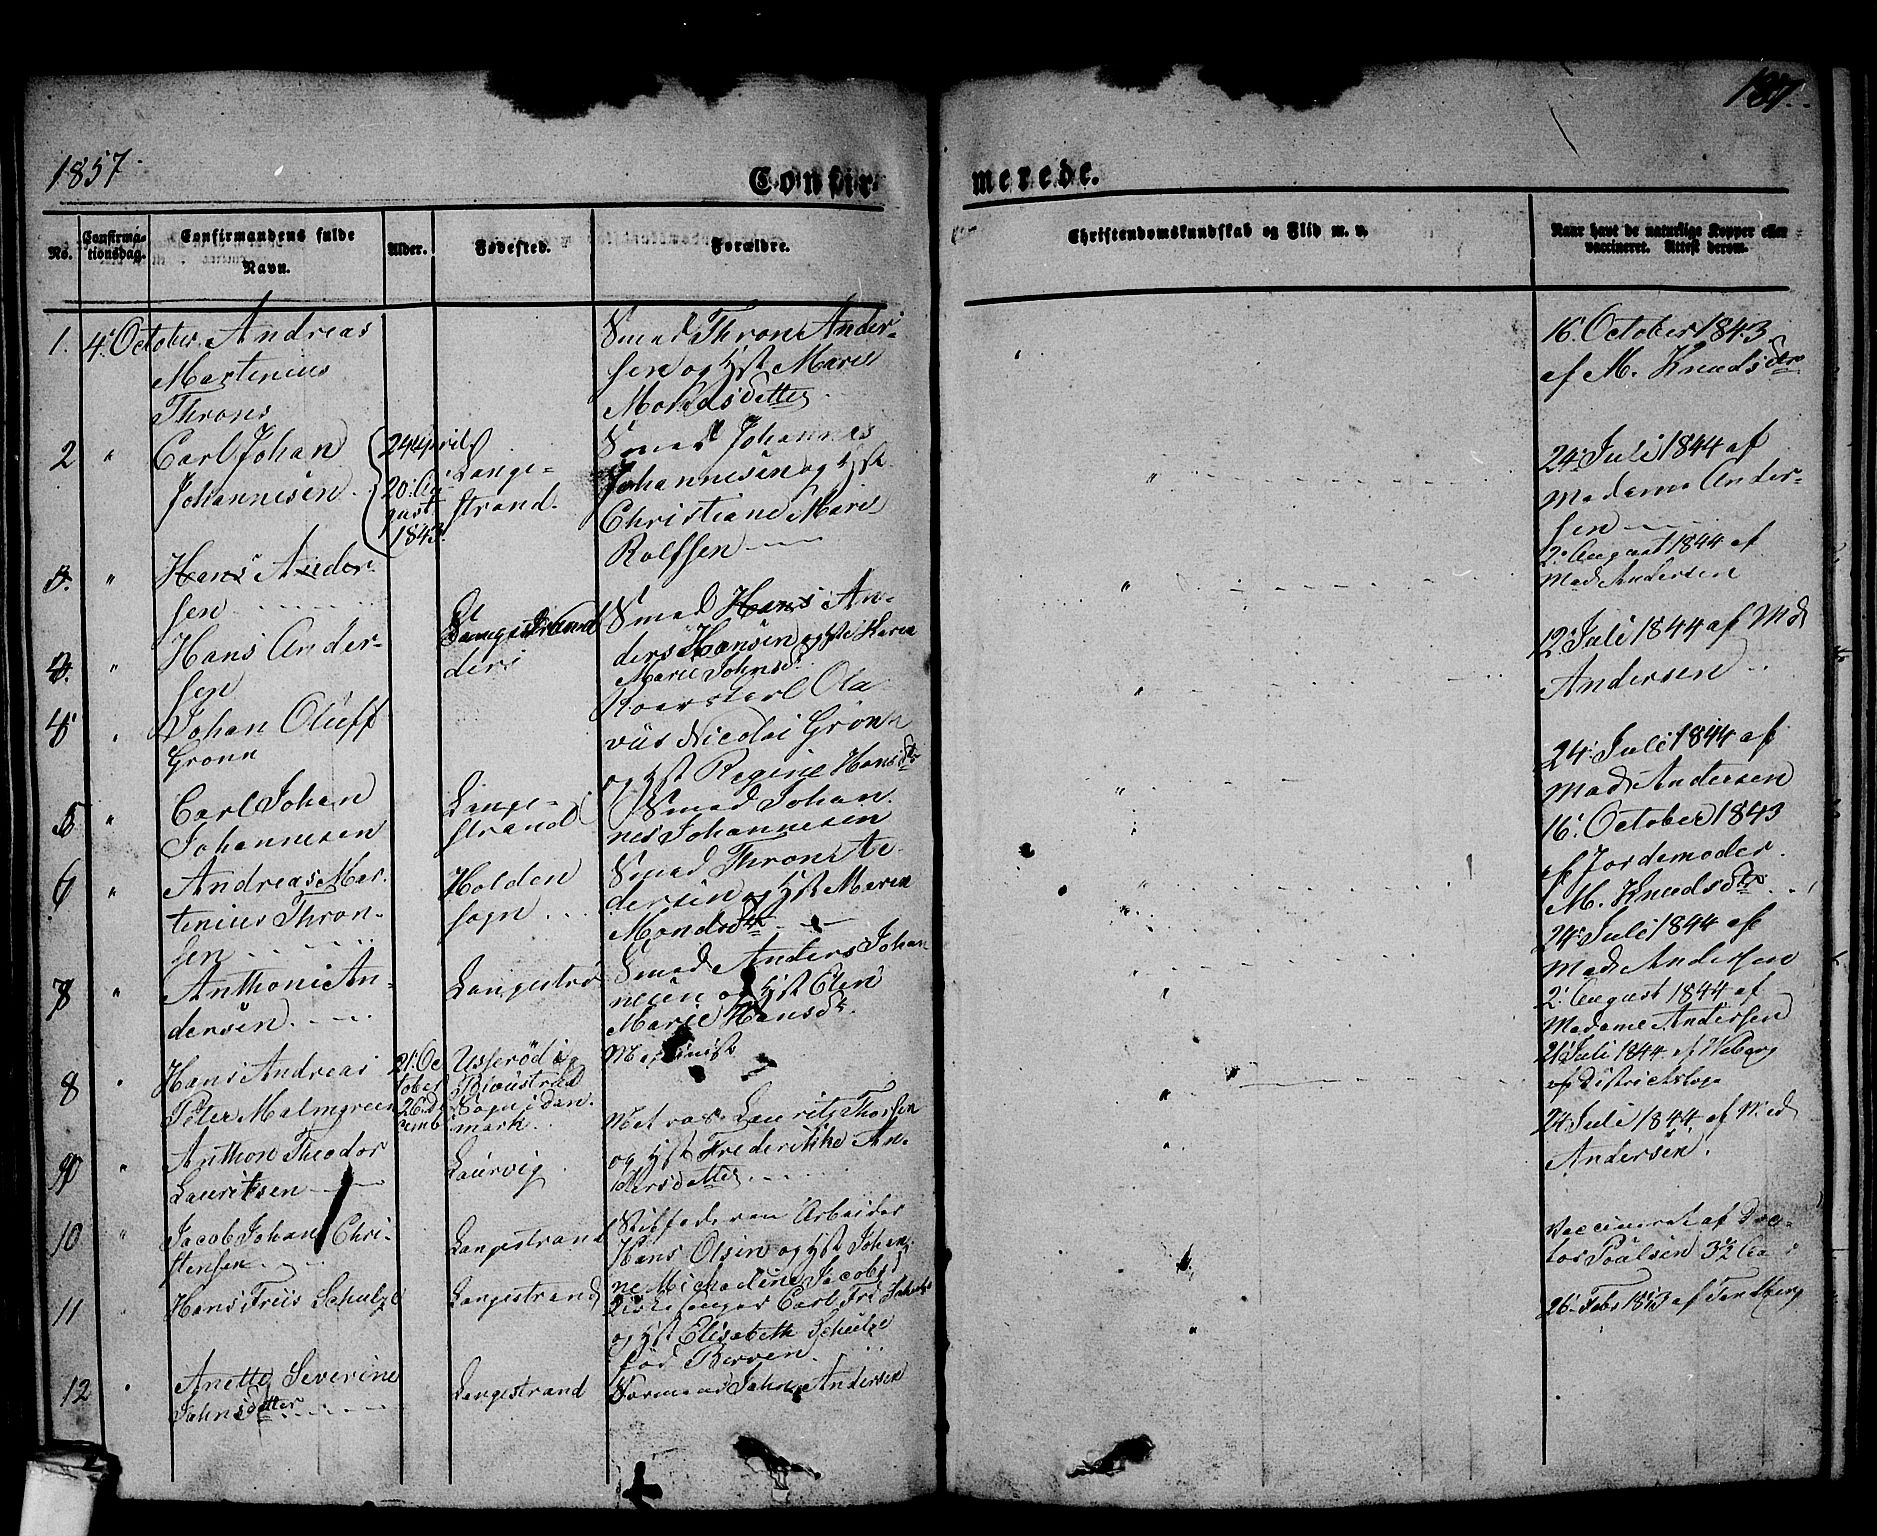 1857.
137.
Confir
merede.
No.
Confirma-
tionsdag.
Confirmandens fulde
Navn.
Alder.
Fødested.
Forældre.
Christendomskundskab og Flid m. v.
Naar havt de naturlige Kopper eller
vaccineret. Attest derom.
1. 4. October Andreas
Martinius
Throns
Smed Thron Ander-
sen og Hst Maren
16 October 1843
af M. Knudsdtr
2 " Carl Johan
Johannesen
24 April
20. Au
gust
1843
Lange-
strand.
Smed Johannes
Johannesen og Hst
Christiane Marie
Rolfsen
24. Juli 1844 af
Madame Ander-
sen
3. " Hans Ander-
sen
2. August 1844 af
Mad Andersen
3. " Hans Ander-
sen
Smed Hans An-
ders Hansen og Hst Karen
Marie Johnsd.
12. Juli 1844 af Md
Andersen
4 " Johan Oluff
Grønn
Ola-
vus Nicolai Grønn
og Hst Regine Hansdtr
24. Juli 1844 af
Mad Andersen
5 " Carl Johan
Johannesen
Lange-
strand
Smed Johan
nes Johannesen
16. October 1843
af Jordemoder
M. Knudsdtr
6 " Andreas Mar-
tenius Thron-
sen
Holden
sogn
Smed Thron
dersen og Hst Maren
24. Juli 1844 af
Mad Andersen
7 " Anthoni An-
dersen
Langestr
Smed Anders Johan
nesen og Hst Elen
Marie Hansdt.
2. August 1844 af
Madame Andersen
8 " Hans Andreas
Peter Malmgreen
21. Oc
tober
Sogn i Dan
mark
21 Juli 1844 af Wiborg
Districtslæge
9 " Anthon Theodor
Lauritsen
Laurvig
Matros Lauritz Thorsen
og Hst Frederikke An-
dersdatter
24 Juli 1844 af Mad
Andersen.
10 " Jacob Johan Chri-
stensen
Langestrand
Arbeider
Hans Olsen og Hst Johan-
ne Michaeline Jacobs
Vaccineret af Doc-
tor Poulsen
11 " Hans Friis Schulze
Langestrand
Kirkesanger Carl Fr. Schulze
og Hst Elisabeth Schulze
fød
26. Febr 1843 af Tandberg
12 " Anette Severine
Johnsdatter
Langestrand
Formand John Andersen